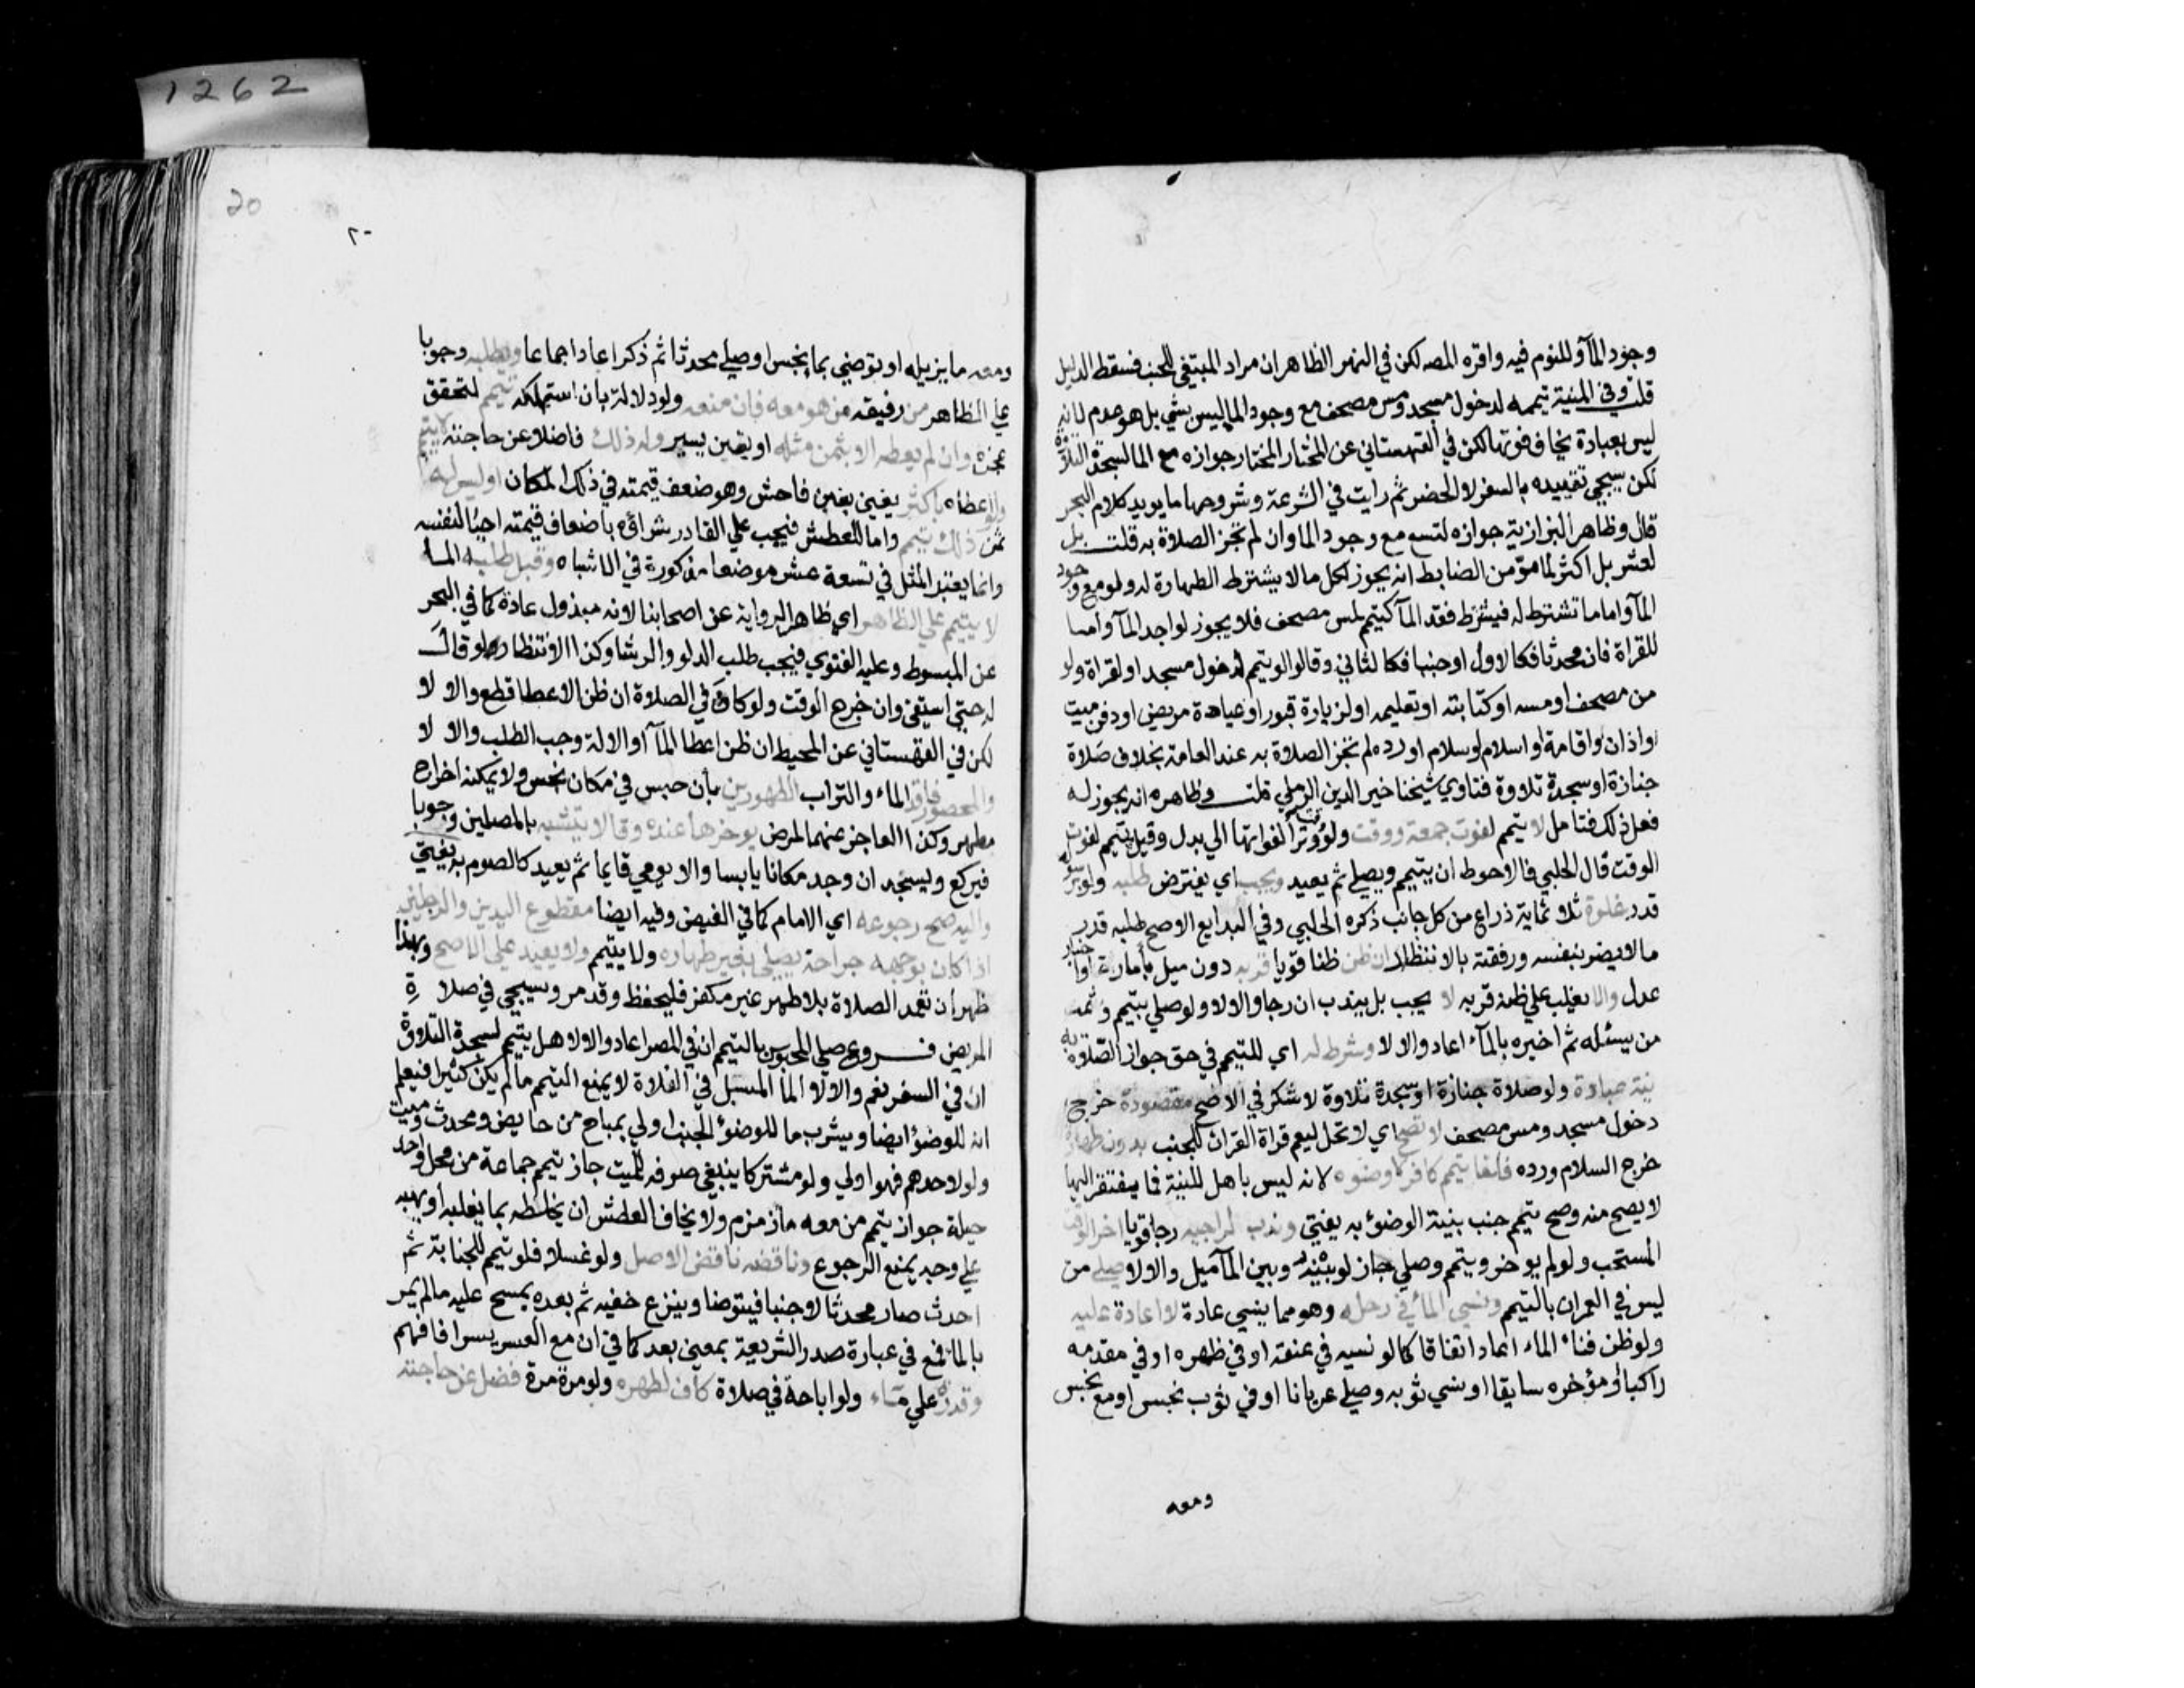 وجود المآ وللنوم فيه واقره المصـ لكن في النهر الظاهر ان مراد المبتغي للجنب فسقط الدليل
قلت وفي المنية تيممه لدخول مسجد ومس مصحف مع وجود الما ليس بشي بل هو عدم لانه
ليس بعبادة يخاف فوتها لكن في القهستاني عن المختار المختار جوازه مع الما لسجدة التلاوة
لكن سيجي تقييده بالسفر لا الحضر ثم رايت في الشرعة وشروحها ما يويد كلام البحر
قال وظاهر البزازية جوازه لتسع مع وجود الما وان لم تجز الصلاة به قلت بل
لعشر بل اكثر لما مر من الضابط انه يجوز لكل ما لا يشترط الطهارة له ولو مع وجود
المآ واما ما تشترط له فيشترط فقد المآ كتيمم لمس مصحف فلا يجوز لواجد المآ واما
للقراة فان محدثا فكالاول او جنبا فكالثاني وقالوا لو تيمم لدخول مسجد او لقراة ولو
من مصحف او مسه او كتابته او تعليمه او لزيارة قبور او عيادة مريض او دفن ميت
او اذان او اقامة او اسلام او سلام او رده لم تجز الصلاة به عند العامة بخلاف صلاة
جنازة او سجدة تلاوة فتاوي شيخنا خير الدين الرملي قلت وظاهره انه يجوز له
فعل ذلك فتامل لا يتيمم لفوت جمعة ووقت ولو وترا لفواتها الي بدل وقيل يتيمم لفوت
الوقت قال الحلبي فالاحوط ان يتيمم ويصلي ثم يعيد ويجب اي يفترض طلبه ولو برسوله
قدر غلوة ثلاثماية ذراع من كل جانب ذكره الحلبي وفي البدايع الاصح طلبه قدر
ما لا يضر بنفسه ورفقته بالانتظار ان ظن ظنا قويا قربه دون ميل بأمارة او اخبار
عدل والا يغلب علي ظنه قربه لا يجب بل يندب ان رجا والا لا ولو صلي بتيمم وثمت
من يسئله ثم اخبره بالمآء اعاد والا لا وشرط له اي للتيمم في حق جواز الصلاة به
نية عبادة ولو صلاة جنازة او سجدة تلاوة لا شكر في الاصح مقصودة خرج
دخول مسجد ومس مصحف لا تصح اي لا تحل ليعم قراة القران للجنب بدون طهارة
خرج السلام ورده فلغا تيمم كافر لا وضوه لانه ليس باهل للنية فما يفتقر اليها
لا يصح منه وصح تيمم جنب بنية الوضؤ به يفتي وندب لراجيه رجا قويا اخر الوقت
المستحب ولو لم يوخر وتيمم وصلي جاز لو بينه وبين المآ ميل والا لا صلي من
ليس في العمران بالتيمم ونسي المآ في رحله وهو مما ينسي عادة لا اعادة عليه
ولو ظن فناء الماء اعاد اتفاقا كما لو نسيه في عنقه او في ظهره او في مقدمه
راكبا او مؤخره سايقا او نسي ثوبه وصلي عريانا او في ثوب نجس او مع نجس
ومعه
1262
20
٢٠
ومعه ما يزيله او توضي بما نجس او صلي محدثا ثم ذكر اعاد اجماعا ويطلبه وجوبا
علي الظاهر من رفيقه من هو معه فان منعه ولو دلالة بان استهلكه تيمم لتحقق
عجزه وان لم يعطه الا بثمن مثله او بغبن يسير وله ذلك فاضلا عن حاجته لا يتيمم
ولو اعطاه باكثر يعني بغبن فاحش وهو ضعف قيمته في ذلك المكان او ليس له
ثمن ذلك تيمم واما للعطش فيجب علي القادر شراؤه باضعاف قيمته احيا لنفسه
وانما يعتبر المثل في تسعة عشر موضعا مذكورة في الاشباه وقبل طلبه الما
لا يتيمم علي الظاهر اي ظاهر الرواية عن اصحابنا لانه مبذول عادة كما في البحر
عن المبسوط وعليه الفتوي فيجب طلب الدلو والرشا وكذا الانتظار ولو قال
له حتي استقي وان خرج الوقت ولو كان في الصلاة ان ظن الاعطا قطع والا لا
لكن في القهستاني عن المحيط ان ظن اعطا المآ او الالة وجب الطلب والا لا
والمحصور فاقد الماء والتراب الطهورين بان حبس في مكان نجس ولا يمكنه اخراج
مطهر وكذا العاجز عنهما لمرض يوخرها عنده وقالا يتشبه بالمصلين وجوبا
فيركع ويسجد ان وجد مكانا يابسا والا يومي قايما ثم يعيد كالصوم به يفتي
واليه صح رجوعه اي الامام كما في الفيض وفيه ايضا مقطوع اليدين والرجلين
اذا كان بوجهه جراحة يصلي بغير طهارة ولا يتيمم ولا يعيد علي الاصح وبهذا
ظهر ان تعمد الصلاة بلا طهر غير مكفر فليحفظ وقد مر وسيجي في صلاة
المريض فروع صلي المحبوس بالتيمم ان في المصر اعاد والا لا هل يتيمم لسجدة التلاوة
ان في السفر نعم والا لا الما المسبل في الفلاة لا يمنع التيمم ما لم يكن كثيرا فيعلم
انه للوضوء ايضا ويشرب ما للوضوء الجنب اولي بمباح من حايض ومحدث وميت
ولو لاحدهم فهو اولي ولو مشتركا ينبغي صرفه للميت جاز تيمم جماعة من محل واحد
حيلة جواز تيمم من معه ما زمزم ولا يخاف العطش ان يخلطه بما يغلبه او يهبه
علي وجه يمنع الرجوع وناقضه ناقض الاصل ولو غسلا فلو تيمم للجنابة ثم
احدث صار محدثا لا جنبا فيتوضا وينزع خفيه ثم بعده يمسح عليه ما لم يمر
بالما فمع في عبارة صدر الشريعة بمعني بعد كما في ان مع العسر يسرا فافهم
وقدرة علي مآء ولو اباحة في صلاة كاف لطهره ولو مرة مرة فضل عن حاجته